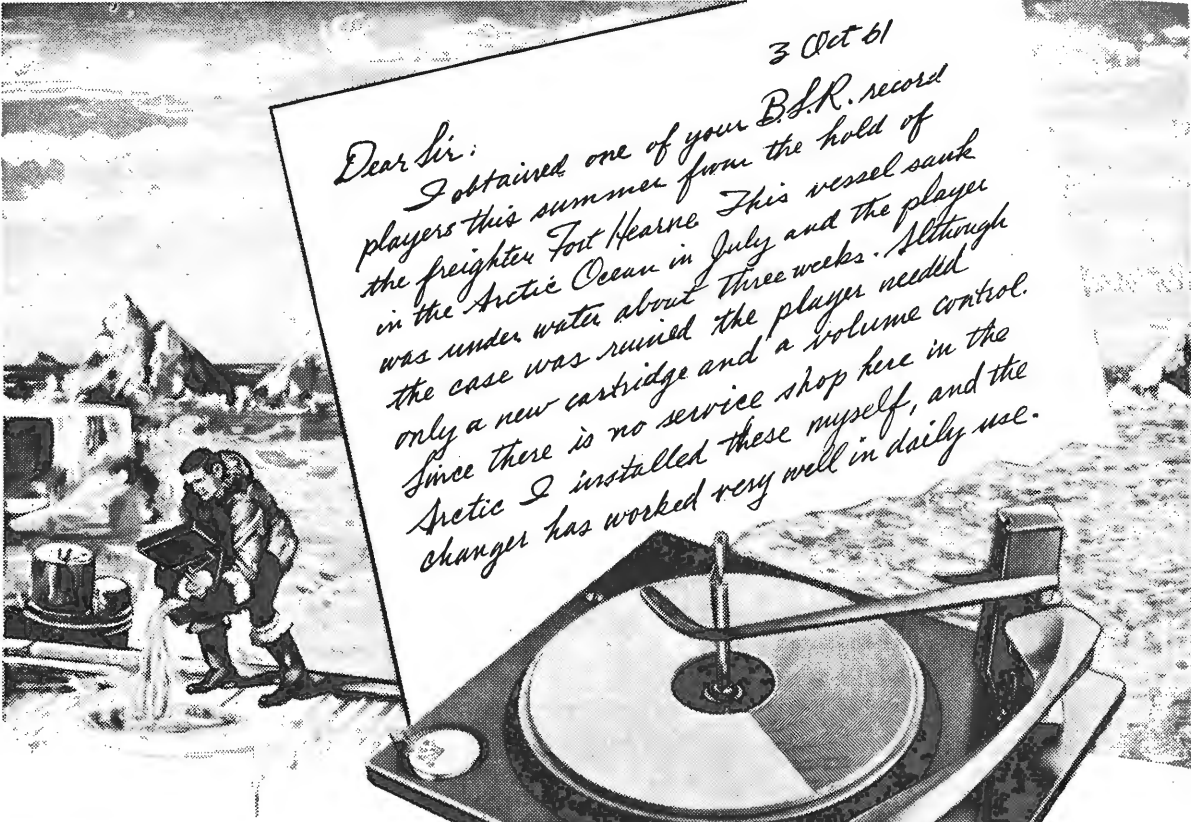 3 Oct 61
Dear Sir:
I obtained one of your B.S.R. record
players this summer from the hold of
the freighter Fort Hearne. This vessel sank
in the Arctic Ocean in July and the player
was under water about three weeks. Although
the case was ruined the player needed
only a new cartridge and a volume control.
Since there is no service shop here in the
Arctic I installed these myself, and the
changer has worked very well in daily use.